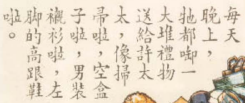 每天
晚上，
牠都啣一
大堆禮物
送給許太
太，像掃
帚啦，空盒
子啦，男裝
襯衫啦，左
脚的高跟鞋
啦。